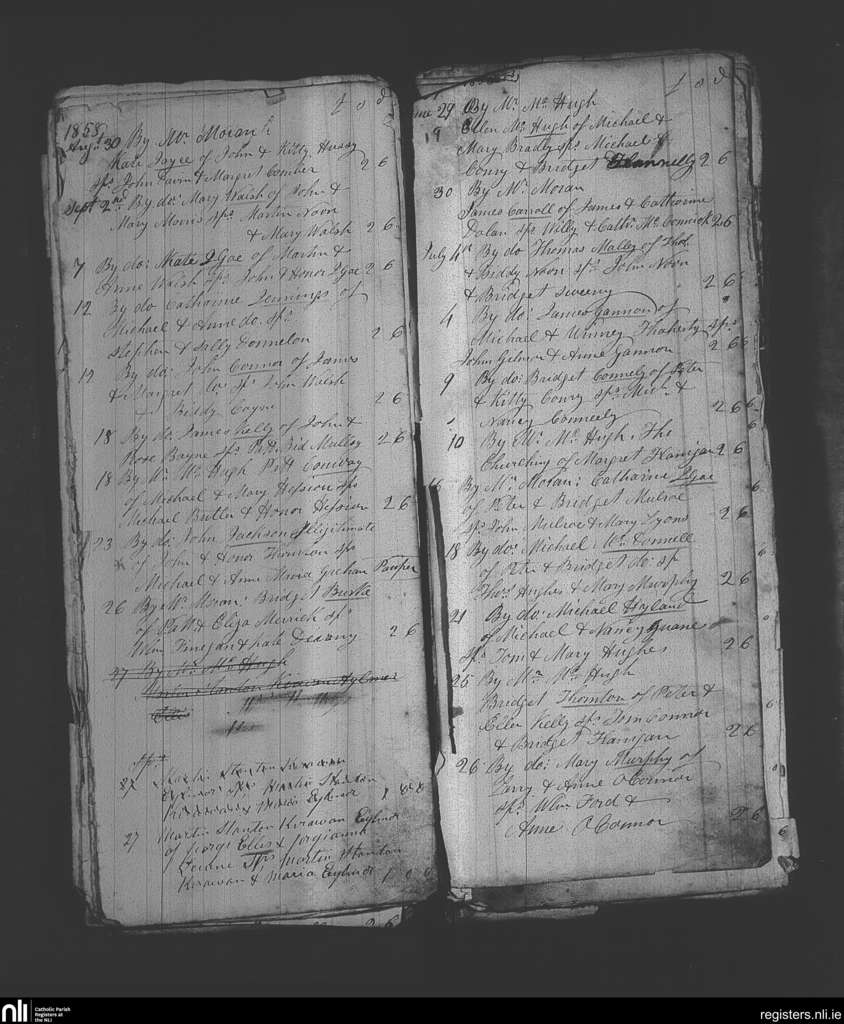 £ s d
1858
Augt 30 By Mr. Moran
Kate Joyce of John & Kitty Hussy
sps John Gavin & Margret Comber 2 6
Sept 2nd By do: Mary Walsh of John &
Mary Morris sps Martin Noon
& Mary Walsh 2 6
7 By do: Kate Igoe of Martin &
Anne Walsh sps John & Honor Igoe 2 6
12 By do Catharine Jennings of
Michael & Anne do. sps
Stephen & Sally Donnelon 2 6
12 By do: John Connor of James
& Margret do. sps John Walsh
& Biddy Coyne 2 6
18 By do James Kelly of John &
Rose Boyne sps Patt. Bid Mulloy 2 6
18 By Mr. Mc Hugh Patt Conway
of Michael & Mary Hession sps
Michael Butler & Honor Hession 2 6
23 By do: John Jackson Illegitimate
of John & Honor Thomson sps
Michael & Anne Maria Grehan Pauper
26 By Mr Moran: Bridget Burke
of Patt & Eliza Merrick sps
Wm Finegan & Kate Deasy 2 6
27 By Mr. Mc Hugh
Martin Stanton Kirawan Aylmer
Ellis
sps
27 Martin Stanton Kirawan
Martin Stanton
27 Martin Stanton Kirawan Eylmer
of George Ellis & Georgianna
sps Martin Stanton
Kirawan & Maria Eylmer 1 0 0
2 6
£ s d
June 29 By Mr. Mc Hugh
19 Ellen Mc Hugh of Michael &
Mary Brady sps Michael &
Conry & Bridget Flannelly 2 6
30 By Mr Moran
James Carroll of James & Catharine
Dolan sps Willy & Cath. Mc Cormick 2 6
July 4th By do Thomas Malley of Thos.
& Biddy Noon sps John Noon
& Bridget Sweeny 2 6
4 By do: James Gannon of
Michael & Winney Flaherty sps
John Gelmor & Anne Gannon 2 6
9 By do: Bridget Conneely of Peter
& Kitty Conry sps Mich. &
Nancy Conneely 2 6
10 By Mr. Mc Hugh, The
Churching of Margret Flanigan 2 6
16 By Mr Moran: Catharine Igoe
of Peter & Bridget Mulroe
sps John Mulroe & Mary Lyons 2 6
18 By do: Michael Mc Donnell
of Peter & Bridget do: sps
Thos Hughes & Mary Murphy 2 6
21 By do: Michael Hyland
of Michael & Nancy Ruane
sps Tom & Mary Hughes 2 6
25 By Mr. Mc Hugh
Bridget Thornton of Peter &
Ellen Kelly sps Tom Connor
& Bridget Flanigan 2 6
26 By do: Mary Murphy of
& Anne O'Connor
sps Wm Ford &
Anne O'Connor 2 6
nli
Catholic Parish
Registers at
the NLI
registers.nli.ie